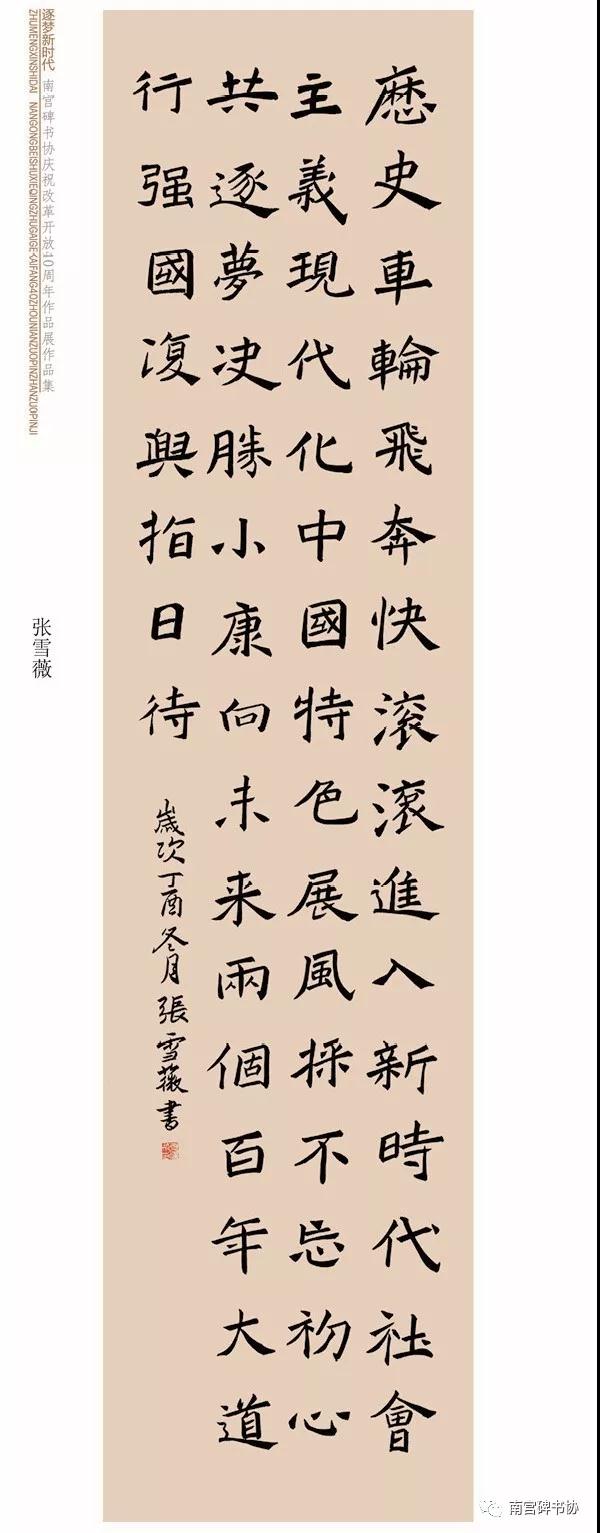 逐梦新时代 南宫碑书协庆祝改革开放40周年作品展作品集
ZHUMENGXINSHIDAI NANGONGBEISHUXIEQINGZHUGAIGEKAIFANG40ZHOUNIANZUOPINZHANZUOPINJI
张雪薇
歷史車輪飛奔快滚滚進入新時代社會
主義現代化中國特色展風採不忘初心
共逐夢决勝小康向未来兩個百年大道
行强國復興指日待
歲次丁酉冬月張雪薇書
南宫碑书协